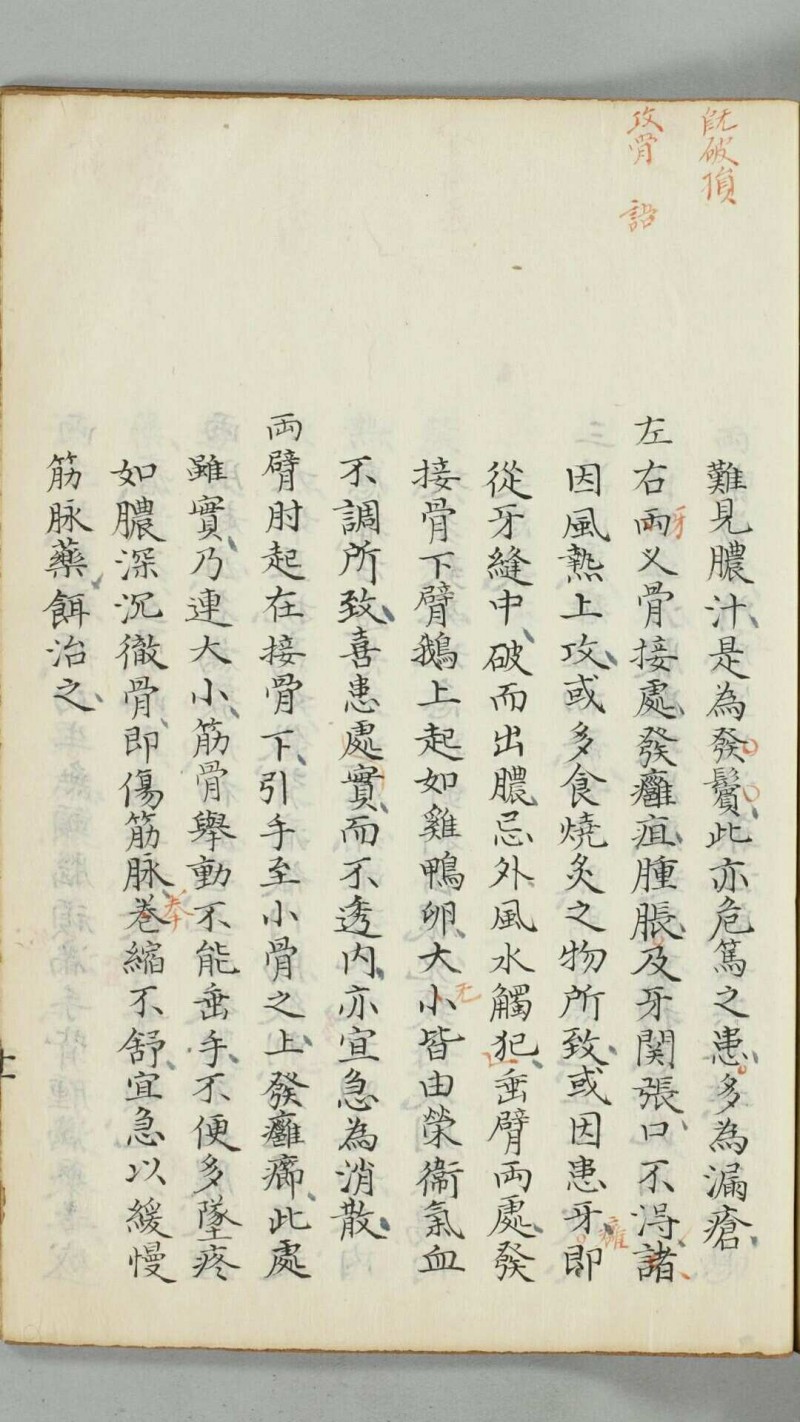 既破頂
攻骨 詔
難見膿汁是為發鬢此亦危篤之患多為漏瘡
左右兩义骨接處發癰疽腫脹及牙関張口不淂諸
牙
因風熱上攻或多食燒炙之物所致或因患牙即
癰
從牙縫中破而出膿忌外風水觸犯垂臂両處發
接骨下臂鵝上起如雞鴨卵大小皆由榮衞氣血
无
不調所致喜患處實而不透内亦宜急為消散
両臂肘起在接骨下引手至小骨之上發癰癤此處
雖實乃連大小筋骨舉動不能垂手不便多墜疼
如膿深沉徹骨即傷筋脉巻縮不舒宜急以緩慢
筋脉藥餌治之